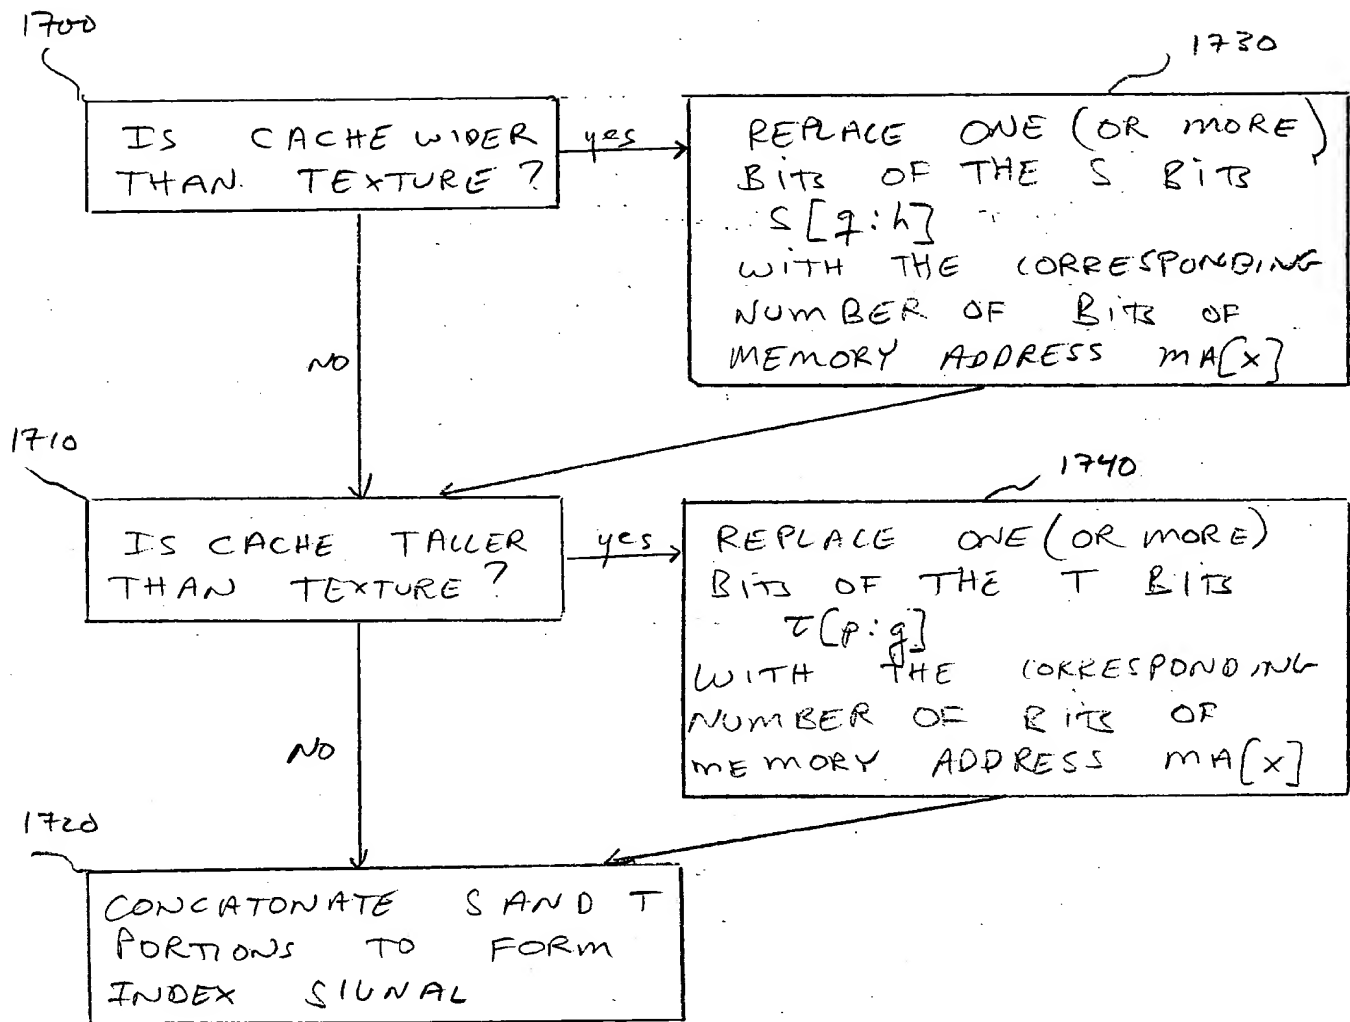 1700
IS CACHE WIDER
THAN TEXTURE?
yes
1730
REPLACE ONE (OR MORE)
BITS OF THE S BITS
S[q:h]
WITH THE CORRESPONDING
NUMBER OF BITS OF
MEMORY ADDRESS MA[X]
NO
1710
IS CACHE TALLER
THAN TEXTURE?
yes
1740
REPLACE ONE (OR MORE)
BITS OF THE T BITS
T[p:g]
WITH THE CORRESPONDING
NUMBER OF BITS OF
MEMORY ADDRESS MA[X]
NO
1720
CONCATONATE S AND T
PORTIONS TO FORM
INDEX SIGNAL